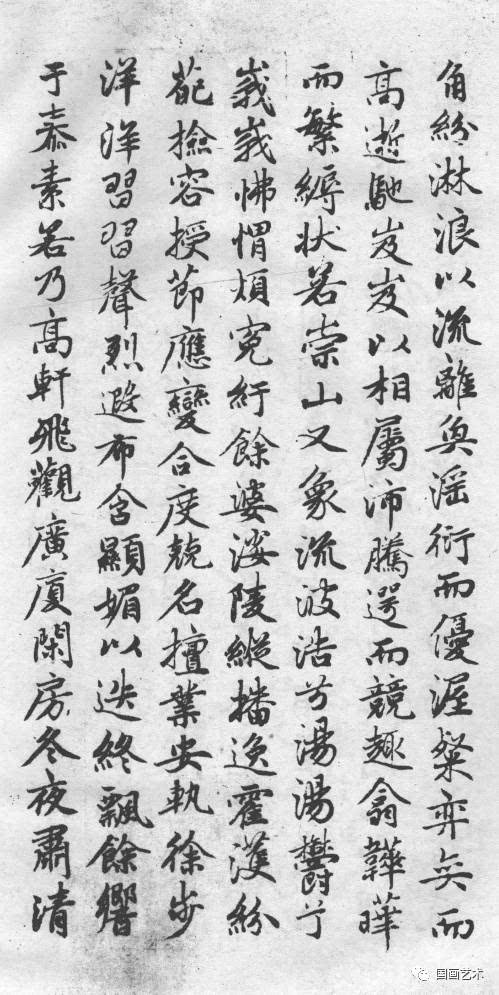 角紛淋浪以流離奐淫衍而優渥粲弈弈而
高逝馳岌岌以相屬沛騰遌而競趣翕韡曄
而繁縟狀若崇山又象流波浩兮湯湯鬱兮
峩峩怫㥜煩冤紆餘婆娑陵縱播逸霍濩紛
葩撿容授節應變合度兢名擅業安軌徐步
洋洋習習聲烈遐布含顯媚以送終飄餘響
于泰素若乃高軒飛觀廣廈閑房冬夜肅清
国画艺术